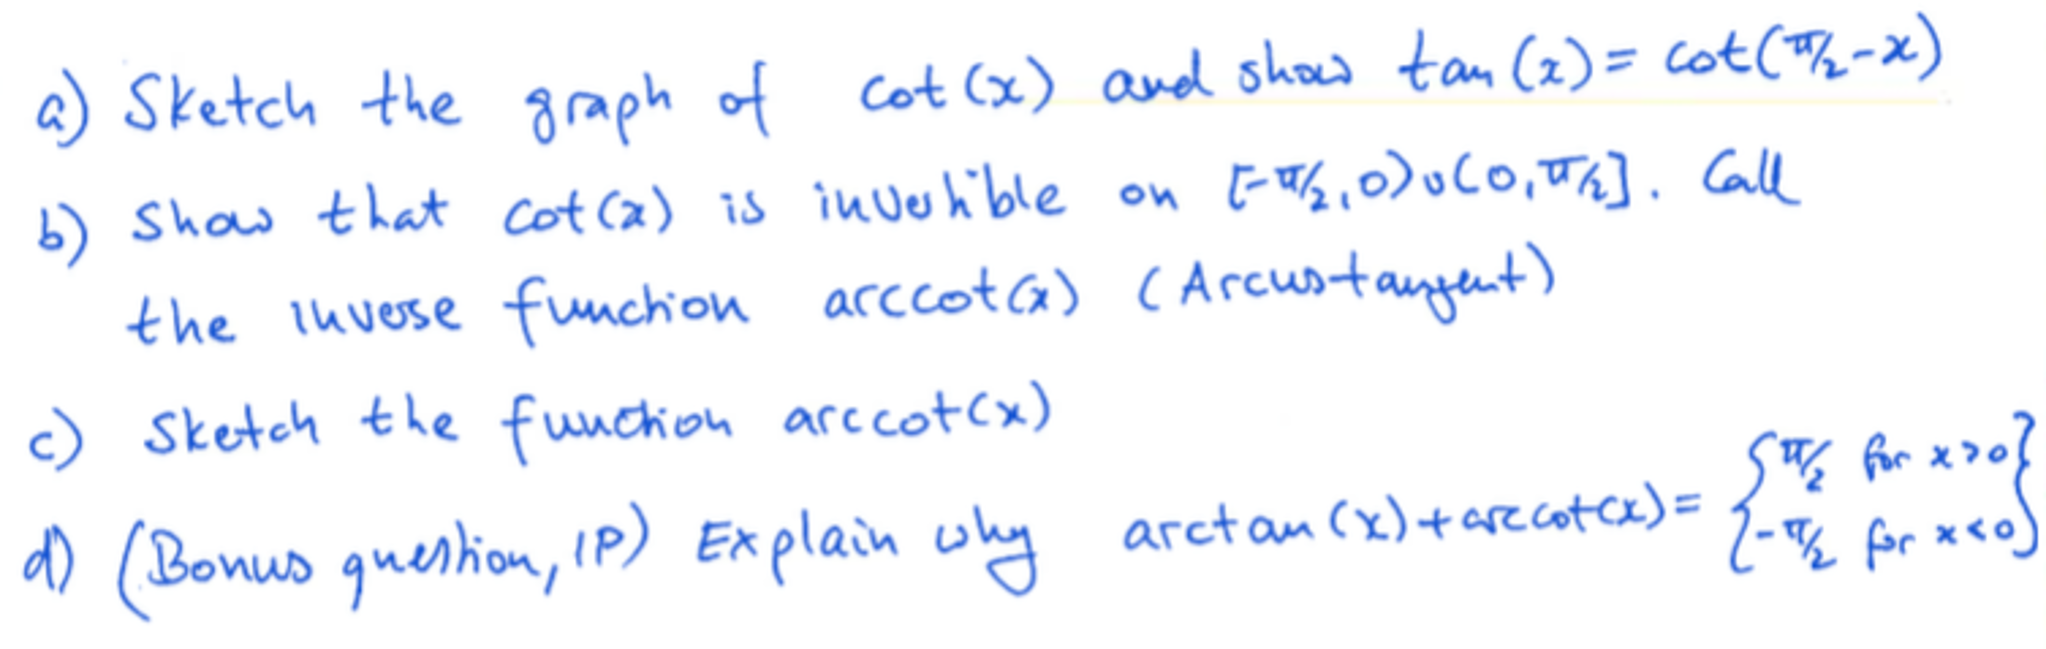 a) Sketch the graph of cot(x) and show tan(x) = cot(π/2-x)
b) Show that cot(x) is invertible on [-π/2,0)∪(0,π/2]. Call
the inverse function arccot(x) (Arcustangent)
c) Sketch the function arccot(x)
d) (Bonus question, 1P) Explain why arctan(x)+arccot(x)= {π/2 for x>0
-π/2 for x<0}